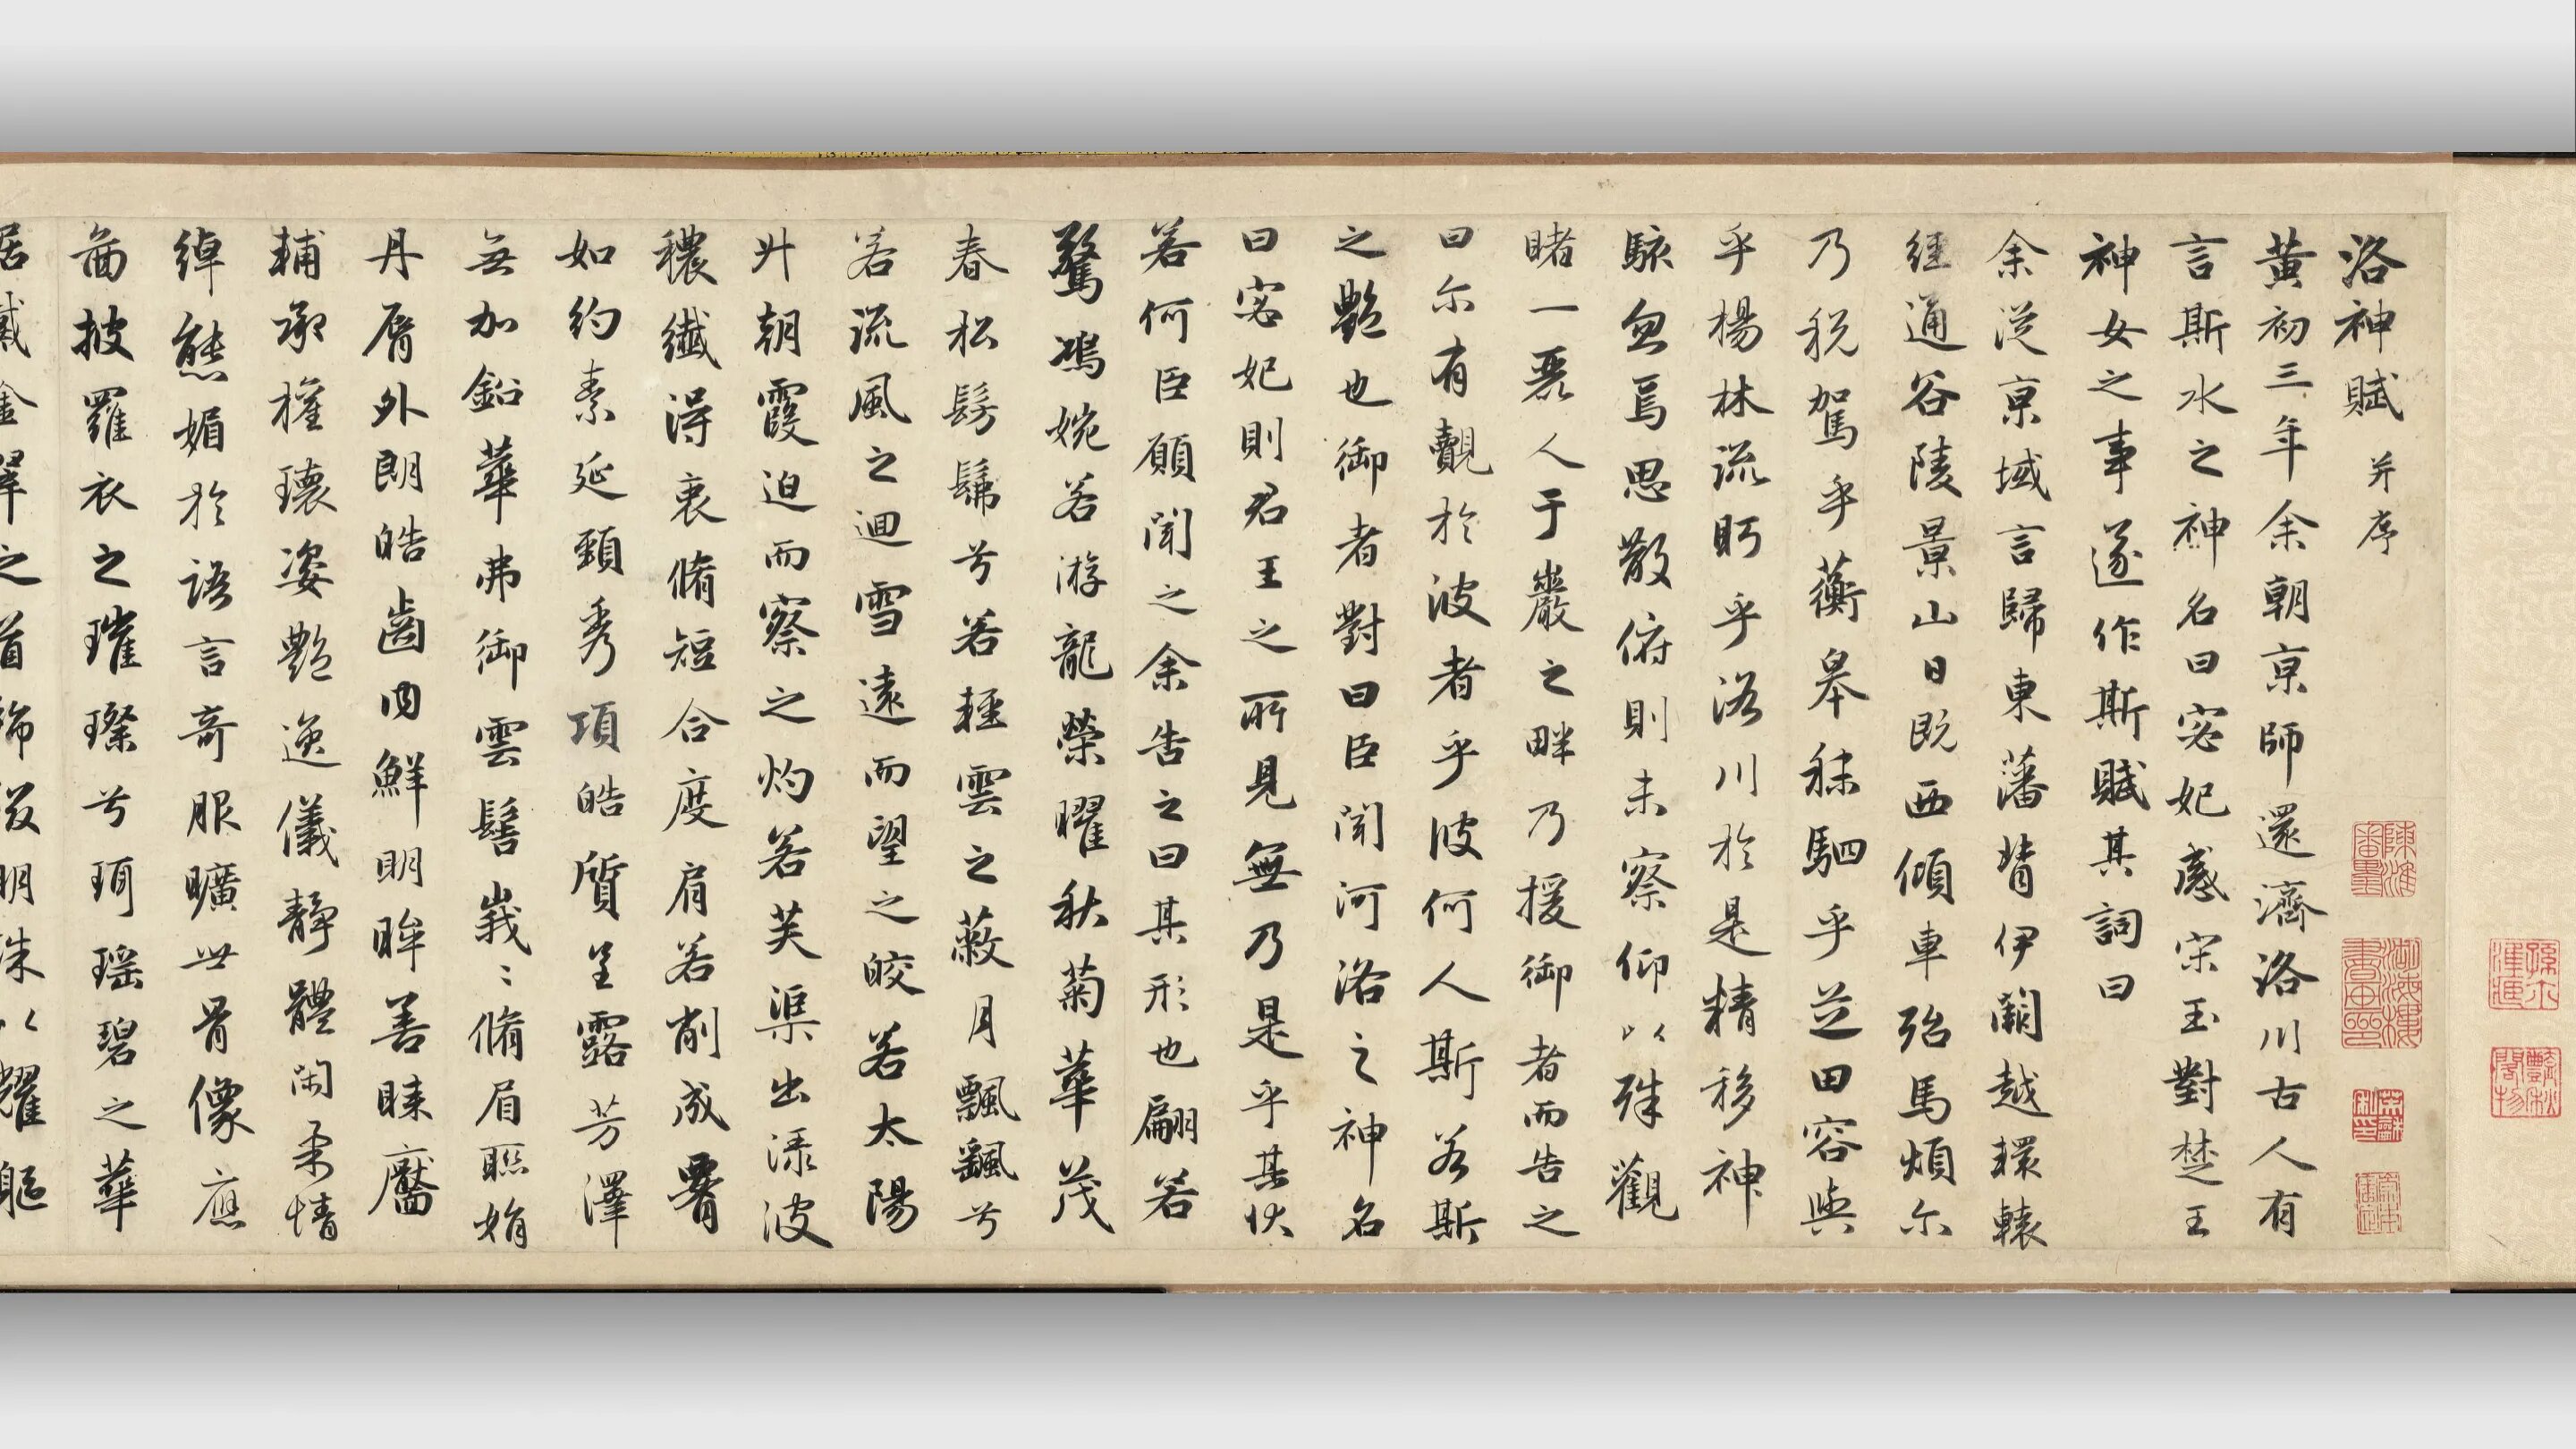 洛神賦 并序
黃初三年余朝京師還濟洛川古人有
言斯水之神名曰宓妃感宋玉對楚王
神女之事遂作斯賦其詞曰
余從京域言歸東藩背伊闕越轘轅
經通谷陵景山日既西傾車殆馬煩尔
乃稅駕乎蘅皋秣駟乎芝田容與
乎楊林流眄乎洛川於是精移神
駭忽焉思散俯則未察仰以殊觀
睹一麗人于巖之畔乃援御者而告之
曰尔有覿於彼者乎彼何人斯若斯
之艷也御者對曰臣聞河洛之神名
曰宓妃則君王之所見無乃是乎其狀
若何臣願聞之余告之曰其形也翩若
驚鴻婉若游龍榮曜秋菊華茂
春松髣髴兮若輕雲之蔽月飄颻兮
若流風之迴雪遠而望之皎若太陽
升朝霞迫而察之灼若芙渠出淥波
穠纖得衷脩短合度肩若削成腰
如約素延頸秀項皓質呈露芳澤
無加鉛華弗御雲髻峩〻脩眉聯娟
丹脣外朗皓齒內鮮明眸善睞靨
輔承權瓌姿艷逸儀靜體閑柔情
綽態媚於語言奇服曠世骨像應
啚披羅衣之璀璨兮珥瑤碧之華
金翠之首飾綴明珠以耀軀